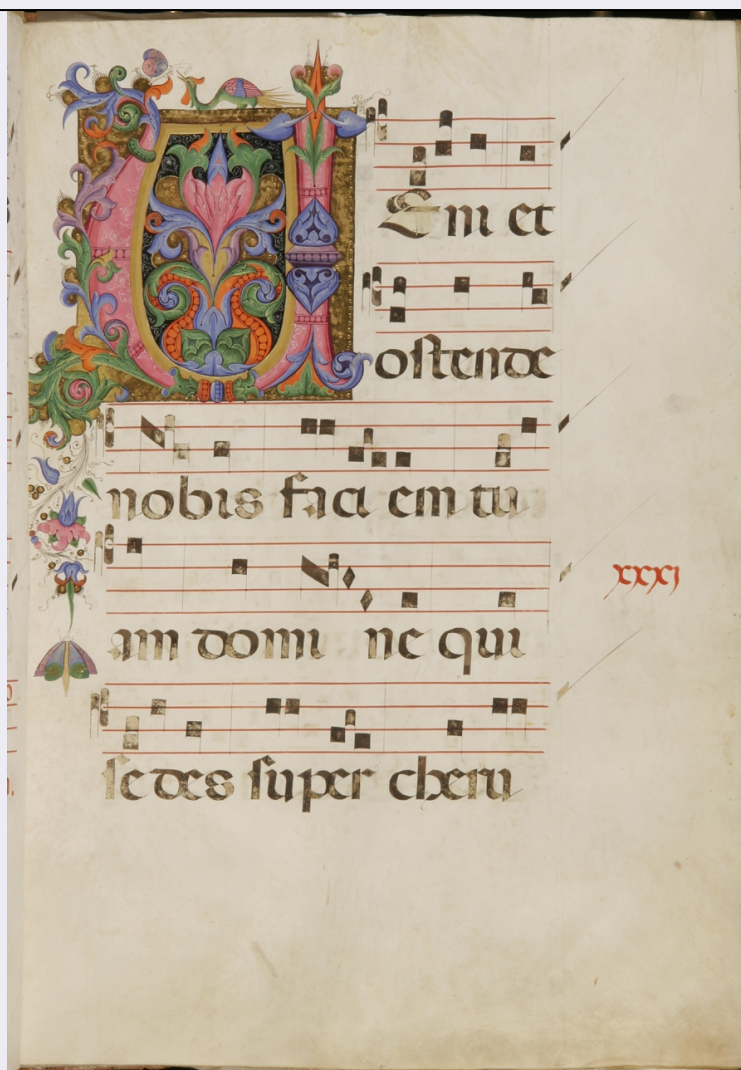 VEni et
ostende
nobis faci em tu
am domi ne qui
xxxi
sedes super cheru